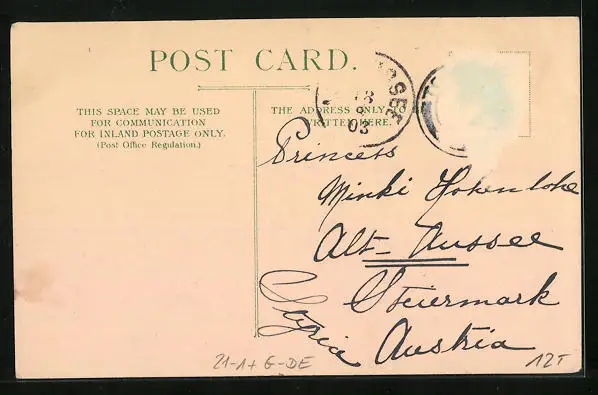 POST CARD.
THIS SPACE MAY BE USED
FOR COMMUNICATION
FOR INLAND POSTAGE ONLY.
(Post Office Regulation.)
THE ADDRESS ONLY TO BE
WRITTEN HERE.
03
Princess
Minki Hohenlohe
Alt-Aussee
Steiermark
Styria Austria
21-1+ G-DE
12T